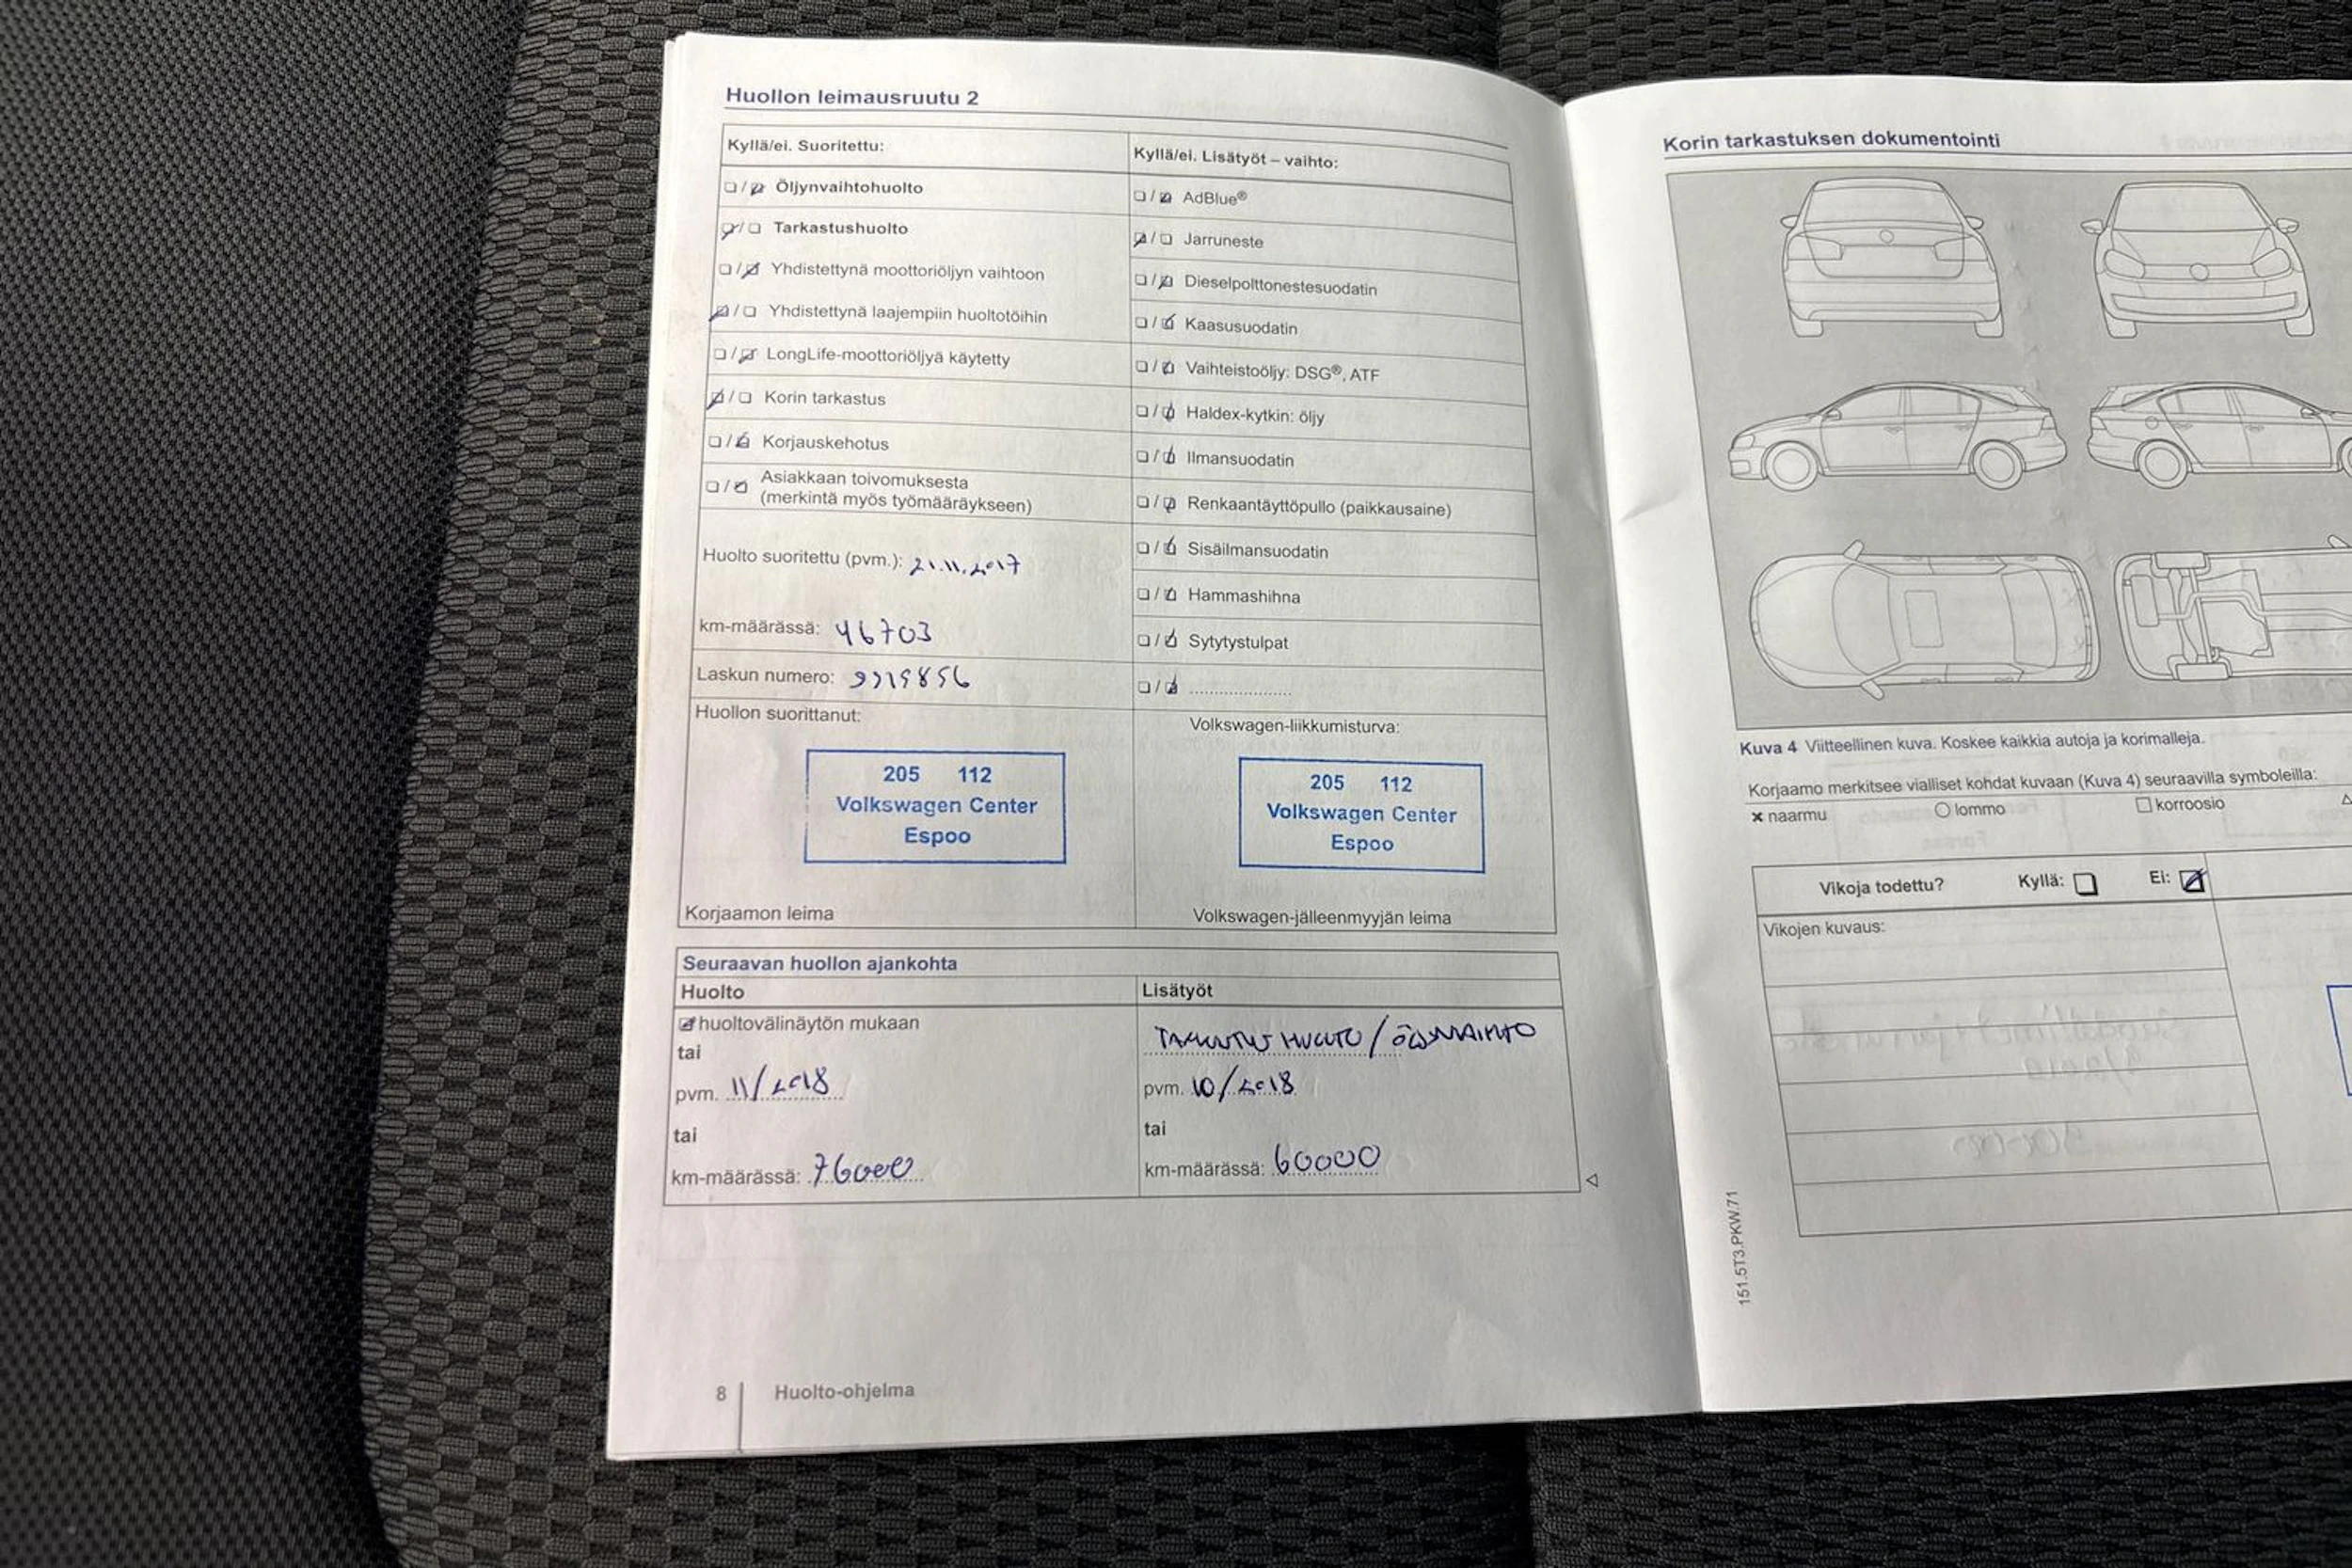 Huollon leimausruutu 2
Kyllä/ei. Suoritettu:
Öljynvaihtohuolto
Tarkastushuolto
Yhdistettynä moottoriöljyn vaihtoon
Yhdistettynä laajempiin huoltotöihin
LongLife-moottoriöljyä käytetty
Korin tarkastus
Korjauskehotus
Asiakkaan toivomuksesta
(merkintä myös työmääräykseen)
Huolto suoritettu (pvm.): 21.11.2017
km-määrässä: 46703
Laskun numero:
Huollon suorittanut:
205 112
Volkswagen Center
Espoo
Korjaamon leima
Kyllä/ei. Lisätyöt – vaihto:
AdBlue®
Jarruneste
Dieselpolttonestesuodatin
Kaasusuodatin
Vaihteistoöljy: DSG®, ATF
Haldex-kytkin: öljy
Ilmansuodatin
Renkaantäyttöpullo (paikkausaine)
Sisäilmansuodatin
Hammashihna
Sytytystulpat
Volkswagen-liikkumisturva:
205 112
Volkswagen Center
Espoo
Volkswagen-jälleenmyyjän leima
Seuraavan huollon ajankohta
Huolto
huoltovälinäytön mukaan
tai
pvm. 11/2018
tai
km-määrässä: 76000
Lisätyöt
pvm. 10/2018
tai
km-määrässä: 60000
8 Huolto-ohjelma
Korin tarkastuksen dokumentointi
Kuva 4 Viitteellinen kuva. Koskee kaikkia autoja ja korimalleja.
Korjaamo merkitsee vialliset kohdat kuvaan (Kuva 4) seuraavilla symboleilla:
naarmu lommo korroosio
Vikoja todettu? Kyllä: Ei:
Vikojen kuvaus:
151.5T3.PKW.71